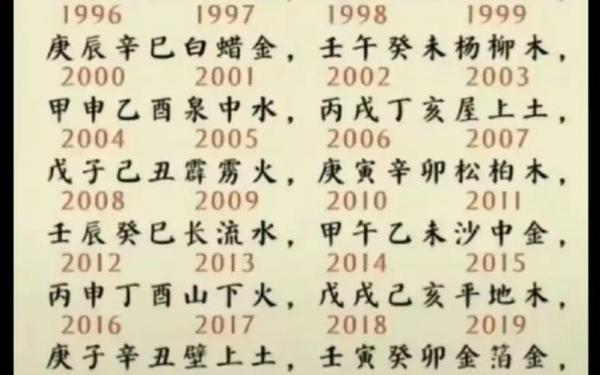 1996 1997 1998 1999
庚辰辛巳白蜡金，壬午癸未杨柳木，
2000 2001 2002 2003
甲申乙酉泉中水，丙戌丁亥屋上土，
2004 2005 2006 2007
戊子己丑霹雳火，庚寅辛卯松柏木，
2008 2009 2010 2011
壬辰癸巳长流水，甲午乙未沙中金，
2012 2013 2014 2015
丙申丁酉山下火，戊戌己亥平地木，
2016 2017 2018 2019
庚子辛丑壁上土，壬寅癸卯金箔金，